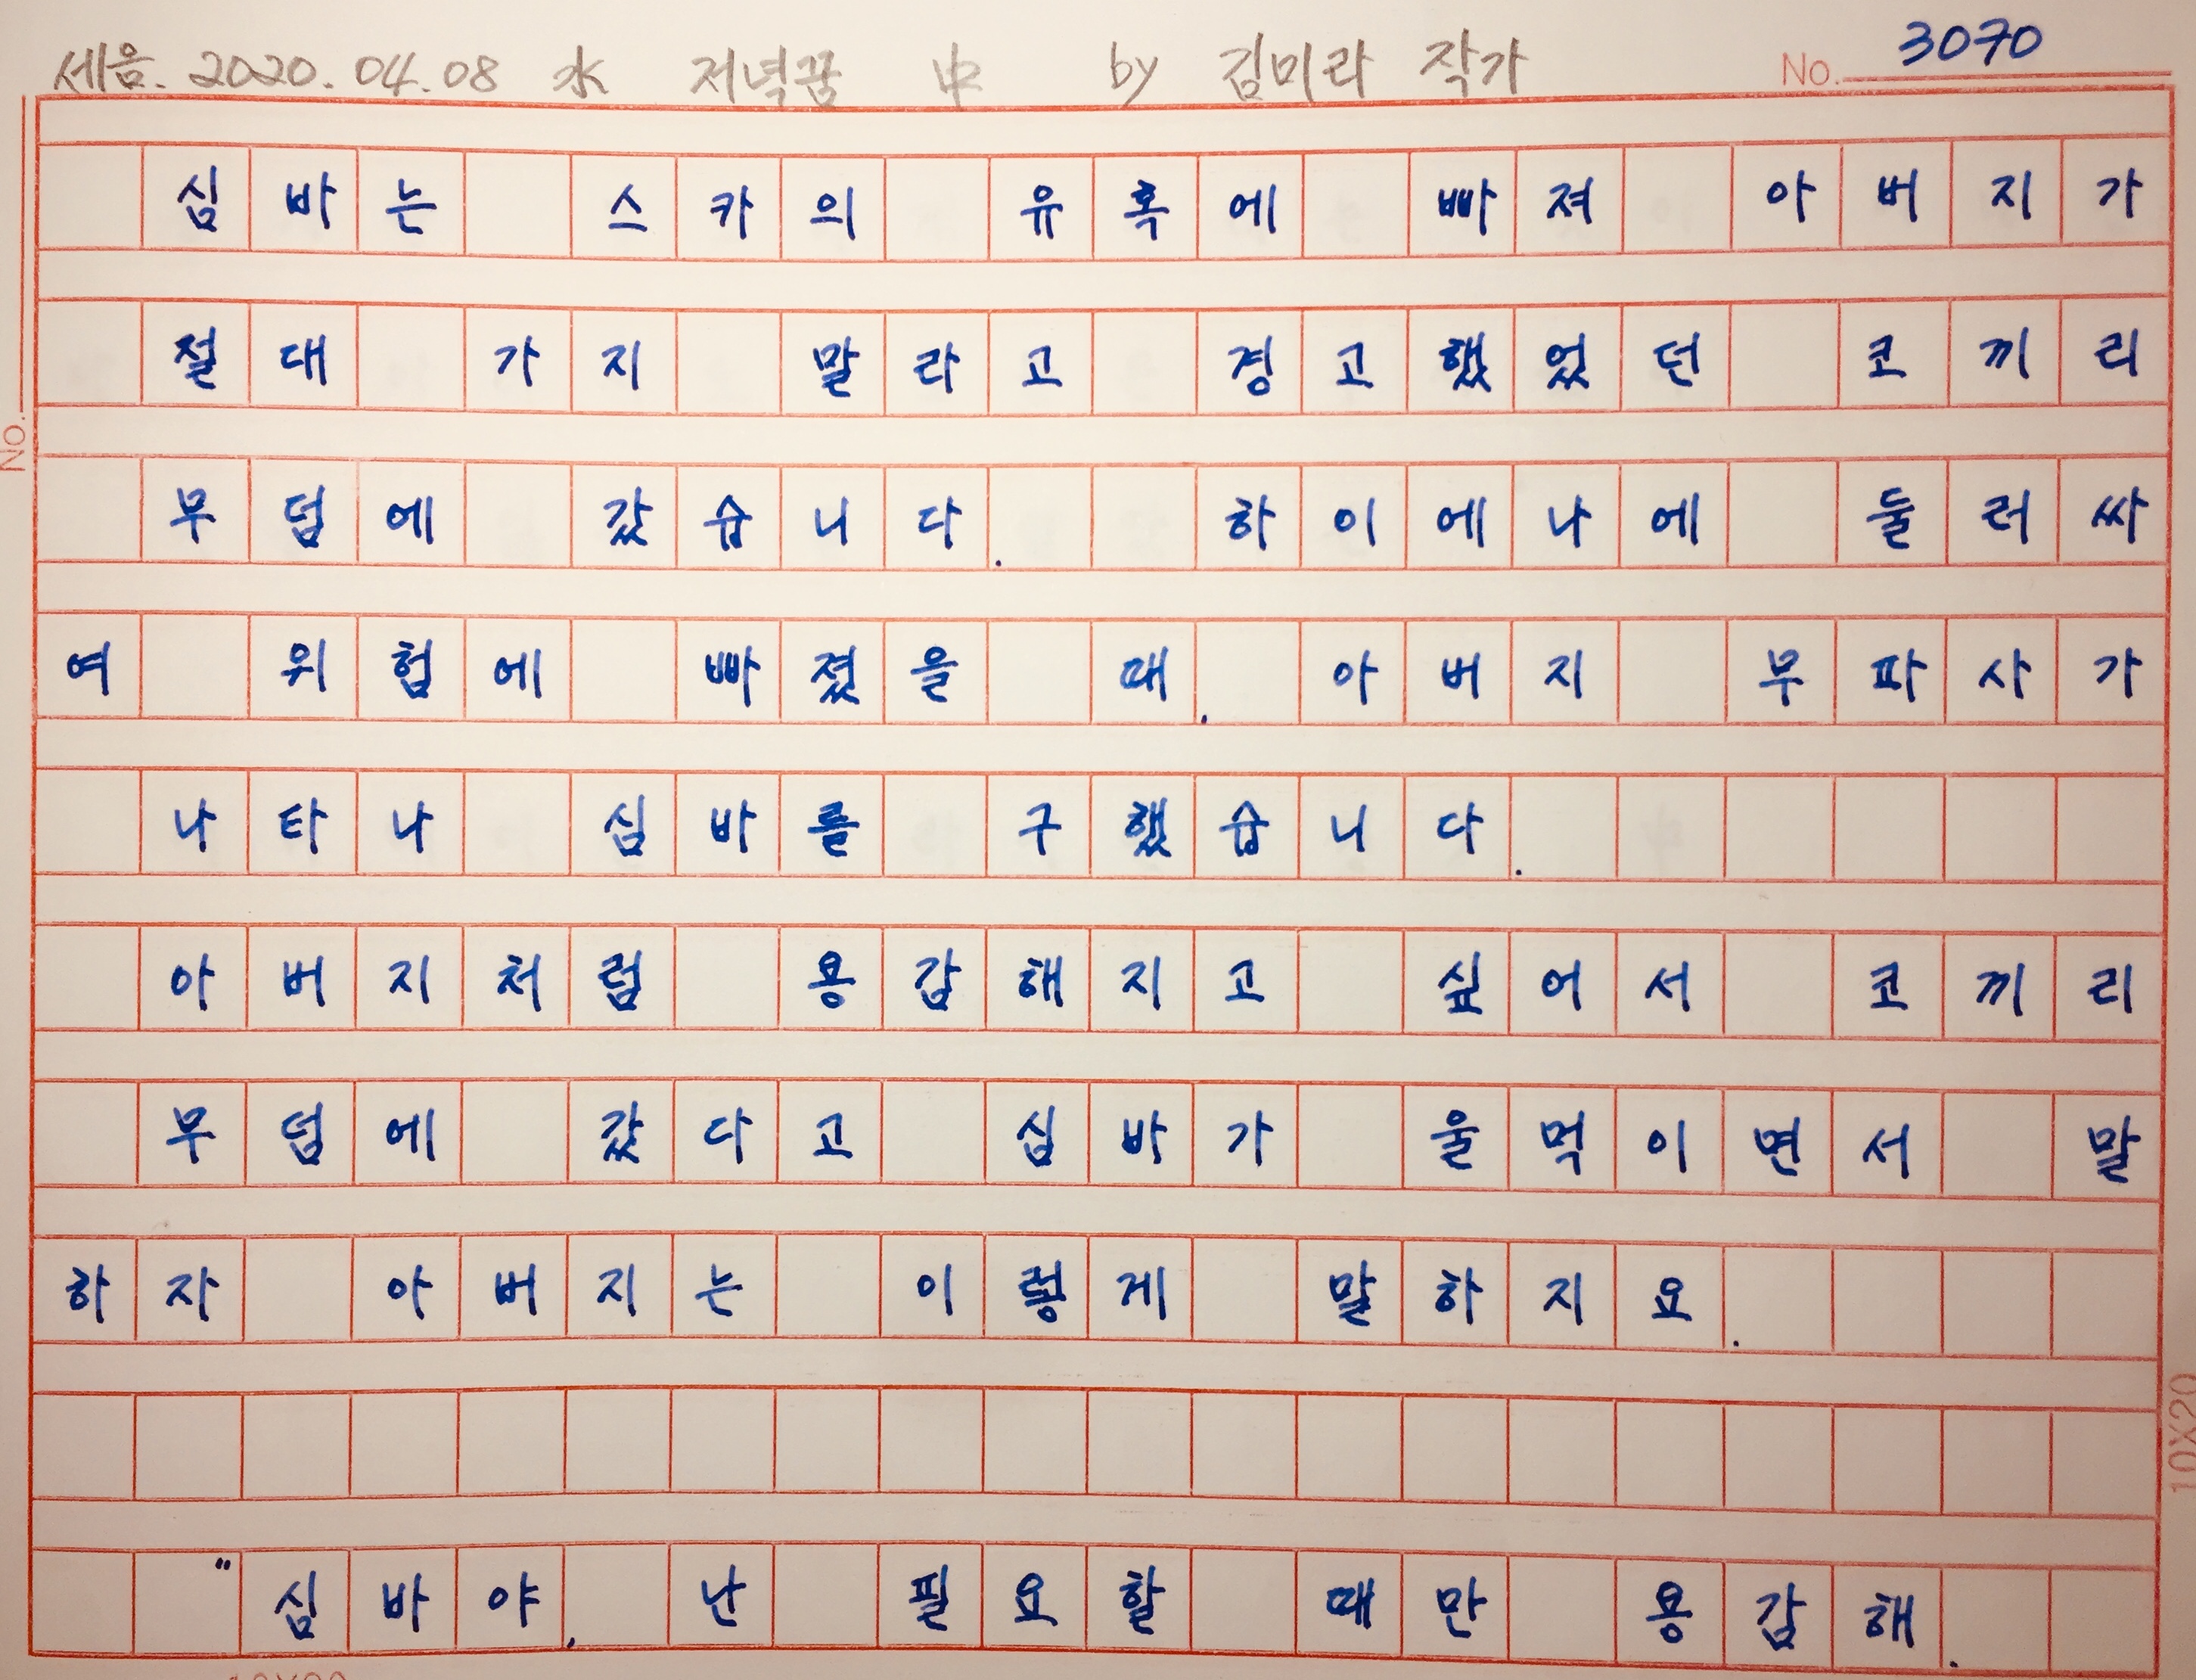 세음. 2020.04.08 水 저녁꿈 中 by 김미라 작가 No. 3070
심바는 스카의 유혹에 빠져 아버지가
절대 가지 말라고 경고했었던 코끼리
No.
무덤에 갔습니다. 하이에나에 둘러싸
여 위험에 빠졌을 때, 아버지 무파사가
나타나 심바를 구했습니다.
아버지처럼 용감해지고 싶어서 코끼리
무덤에 갔다고 심바가 울먹이면서 말
하자 아버지는 이렇게 말하지요.
10X20
"심바야, 난 필요할 때만 용감해.